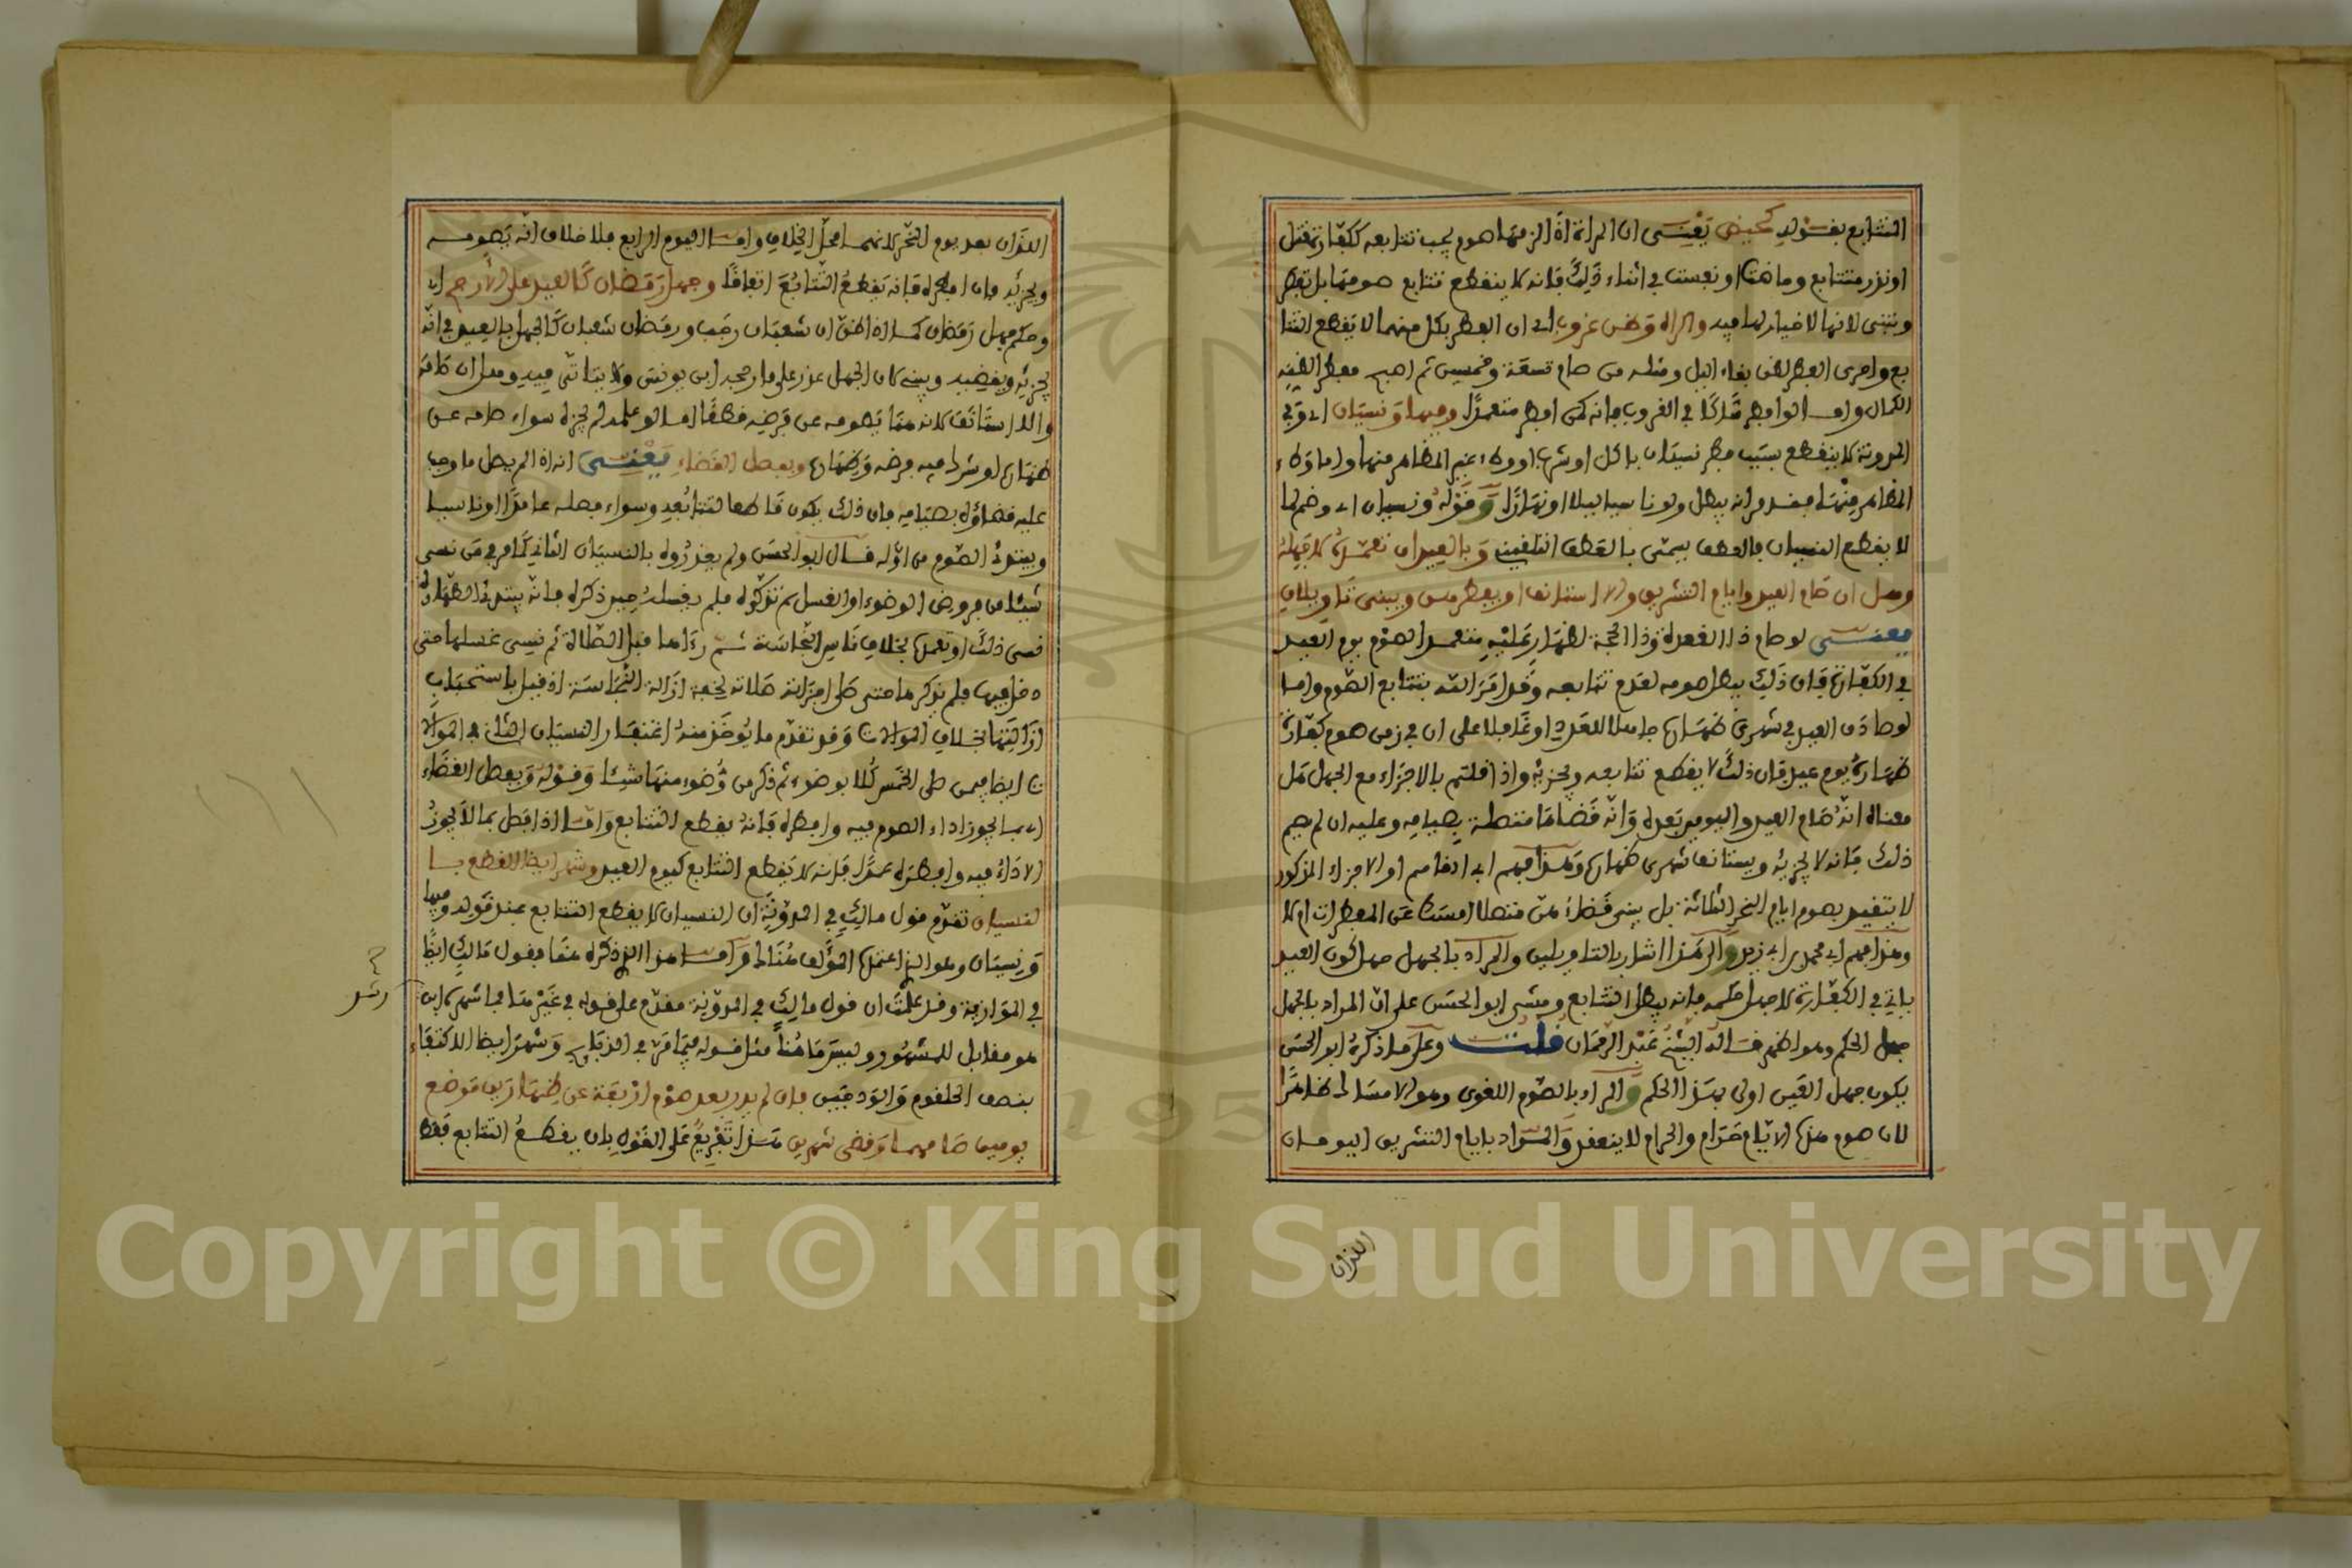 التتابع بقوله كحيض يعني ان المراة اذا لزمها صوم يجب تتابعه ككفارة قتل
او نذر متتابع وحاضت او نفست في اثناء ذلك فانه لا ينقطع تتابع صومها بل تفطر
وتبني لانها لا خيار لها فيه واكراه وظن غروب اي ان الفطر بكل منهما لا يقطع التتا
بع واحرى الفطر لظن بقاء اليل ومثله من صام تسعة وخمسين ثم اصبح مفطرا لظنه
الكمال واما لو افطر شاكا في الغروب فانه كمن افطر متعمدا وفيها ونسيان اي وفي
المدونة لا ينقطع بسبب فطر نسيان باكل او شرب او وطء غير المظاهر منها واما وطء
المظاهر منها فقد مر انه يبطل ولو ناسيا ليلا او نهارا وقوله ونسيان اي وضم لما
لا يقطع النسيان فالعطف يسمى بالعطف التلقيني وبالعيد ان تعمده لا جهله
وهل ان صام العيد وايام التشريق والا استانف او يفطرهن ويبني تاويلان
يعني لو صام ذا القعدة وذا الحجة لظهار عليه متعمدا لصوم يوم العيد
في الكفارة فان ذلك يبطل صومه لعدم تتابعه وقد امر الله بتتابع الصوم واما
لو صادف العيد في شهري ظهاره جاهلا للعدد او غافلا على ان في زمن صوم كفارة
ظهاره يوم عيد فان ذلك لا يقطع تتابعه ويجزيه واذا قلتم بالاجزاء مع الجهل هل
معناه انه صام العيد واليومين بعده وانه قضاها متصلة بصيامه وعليه ان لم يصم
ذلك فانه لا يجزيه ويستانف شهري ظهاره وهذا فهم ابي ... او الاجزاء المذكور
لا يتقيد بصوم ايام النحر الثلاثة بل يبني قضاءهن متصلا امسك عن المفطرات ام لا
وهذا فهم ابي محمد بن ابي زيد والى هذا اشار بالتاويلين والمراد بالجهل جهل كون العيد
ياتي في الكفارة لا جهل حكمه فانه يبطل التتابع ومشى ابو الحسن على ان المراد بالجهل
جهل الحكم وهو اظهر قاله الشيخ عبد الرحمان قلت وعلى ما ذكره ابو الحسن
يكون جهل العين اولى بهذا الحكم والمراد بالصوم اللغوي وهو الامساك ظاهرا
لان صوم هذه الايام حرام والحرام لا ينعقد والمراد بايام التشريق اليومان
اللذان
اللذان بعد يوم النحر لانهما محل الخلاف واما اليوم الرابع فلا خلاف انه يصومه
ويجزيه فان افطره فانه يقطع التتابع اتفاقا وجهل رمضان كالعيد على الارجح اي
وحكم جهل رمضان كما اذا ظن ان شعبان رجب ورمضان شعبان كالجهل بالعيد في انه
يجزيه ويقضيه ويبني كان الجهل عذر على ما رجحه ابن يونس ولا يتاتى فيه وهل ان صام
والا استانف لانه مما يصومه عن فرضه قطعا اما لو علمه لم يجزه سواء صامه عن
ظهاره او شرك فيه فرضه وظهاره وبفصل القضاء يعني انه اذا لم يصل ما وجب
عليه قضاؤه بصيامه فان ذلك يكون قاطعا لتتابعه وسواء فصله عامدا او ناسيا
ويبتدئ الصوم من اوله قال ابو الحسن ولم يعذروه بالنسيان الثاني كما مر في من نسي
شيئا من فروض الوضوء او الغسل ثم تذكره فلم يغسله حين ذكره فانه يبتدئ الطهارة
نسي ذلك او تعمده بخلاف ناس النجاسة ثم رءاها قبل الصلاة ثم نسي غسلها حتى
دخل فيها فلم يذكرها حتى صلى اجزاته صلاته لخفة ازالة النجاسة اذ قيل باستحباب
ازالتها بخلاف الموالاة وقد تقدم ما يوخذ منه اغتفار النسيان الثاني في الموالا
ة ايضا فيمن صلى الخمس كلا بوضوء ثم ذكر من وضوء منها شيئا وقوله وبفصل القضاء
اي مما يجوز اداء الصوم فيه وافطره فانه يقطع التتابع واما اذا فصل بما لا يجوز
الاداء فيه وافطره عمدا فانه لا يقطع التتابع كيوم العيد وشهر ايضا القطع با
لنسيان تقدم قول مالك في المدونة ان النسيان لا يقطع التتابع عند قوله وفيها
ونسيان وهو الذي اعتمده المؤلف هناك واما هذا الذي ذكره هنا فقول مالك ايضا
في الموازية وقد علمت ان قول مالك في المدونة مقدم على قوله في غيرها فما شهره ابن
رشد
هو مقابل للمشهور وليس ما هنا مثل قوله فيما مر في الذكاة وشهر ايضا الاكتفاء
بنصف الحلقوم والودجين فان لم يدر بعد صوم اربعة عن ظهارين موضع
يومين صامهما وقضى شهرين هذا تفريع على القول بان يقطع التتابع فقط
Copyright © King Saud University
1957